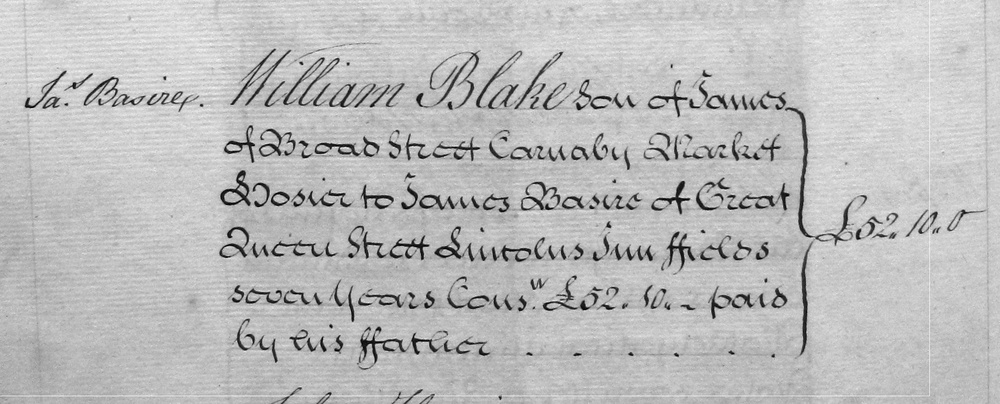 Jas. Basire. William Blake son of James
of Broad Street Carnaby Market
Hosier to James Basire of Great
Queen Street Lincolns Inn ffields
seven Years Consn. £52. 10. - paid
by his ffather . . . . . .
£52. 10. 0